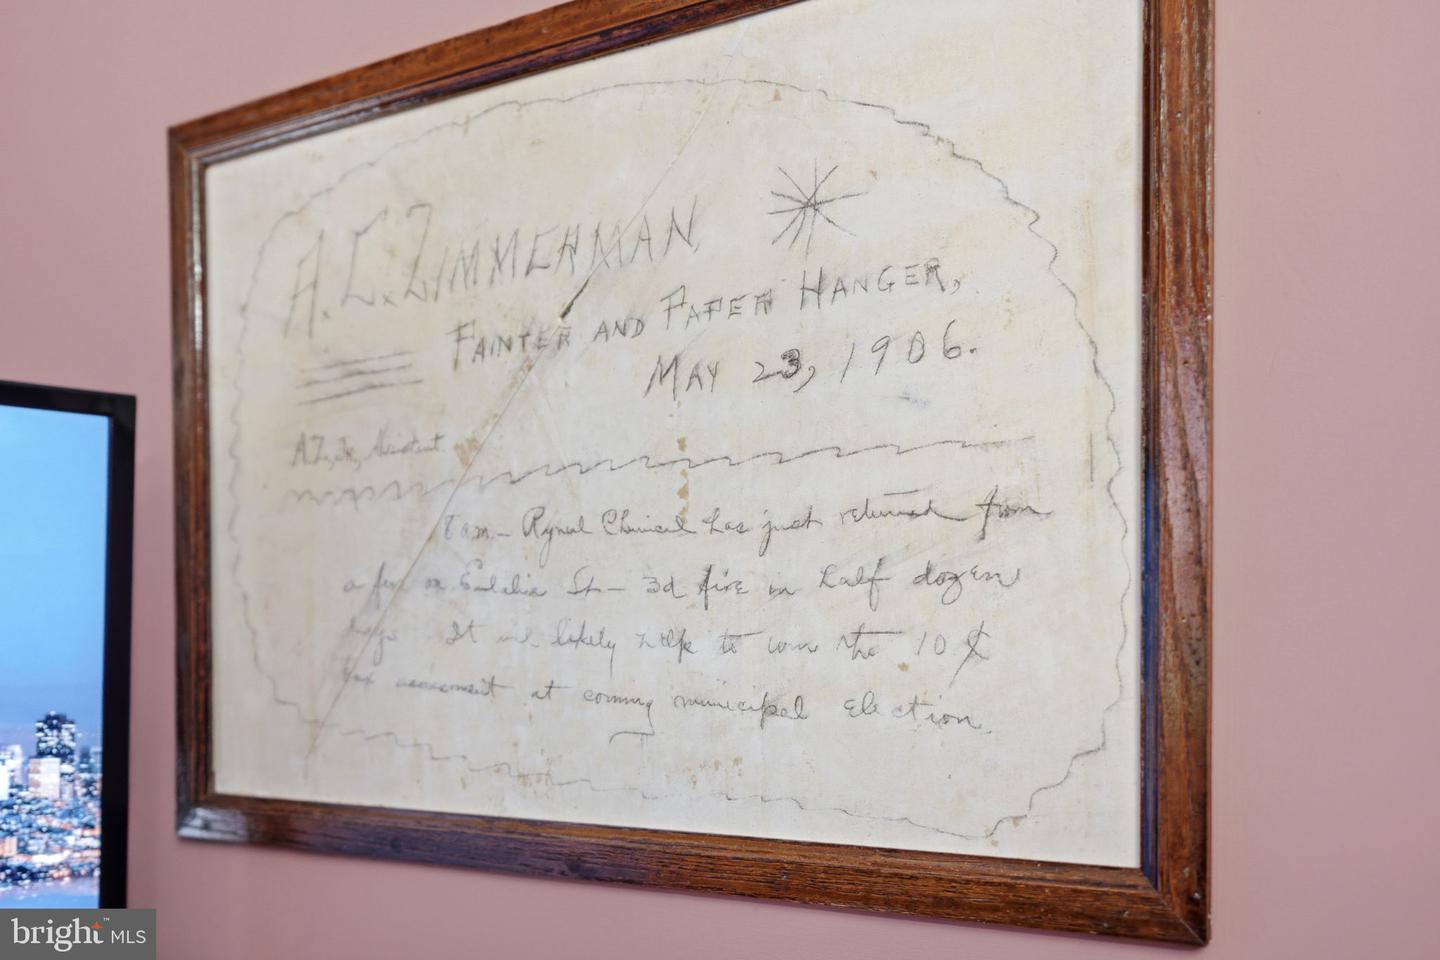 A. C. ZIMMERMAN,
PAINTER AND PAPER HANGER,
MAY 23, 1906.
A.Z., Jr., Assistant
8 a.m. — Chemical has just returned from
a fire on St — 3d fire in half dozen
days It will likely help to win the 10 ¢
tax assessment at coming municipal election.
bright™ MLS